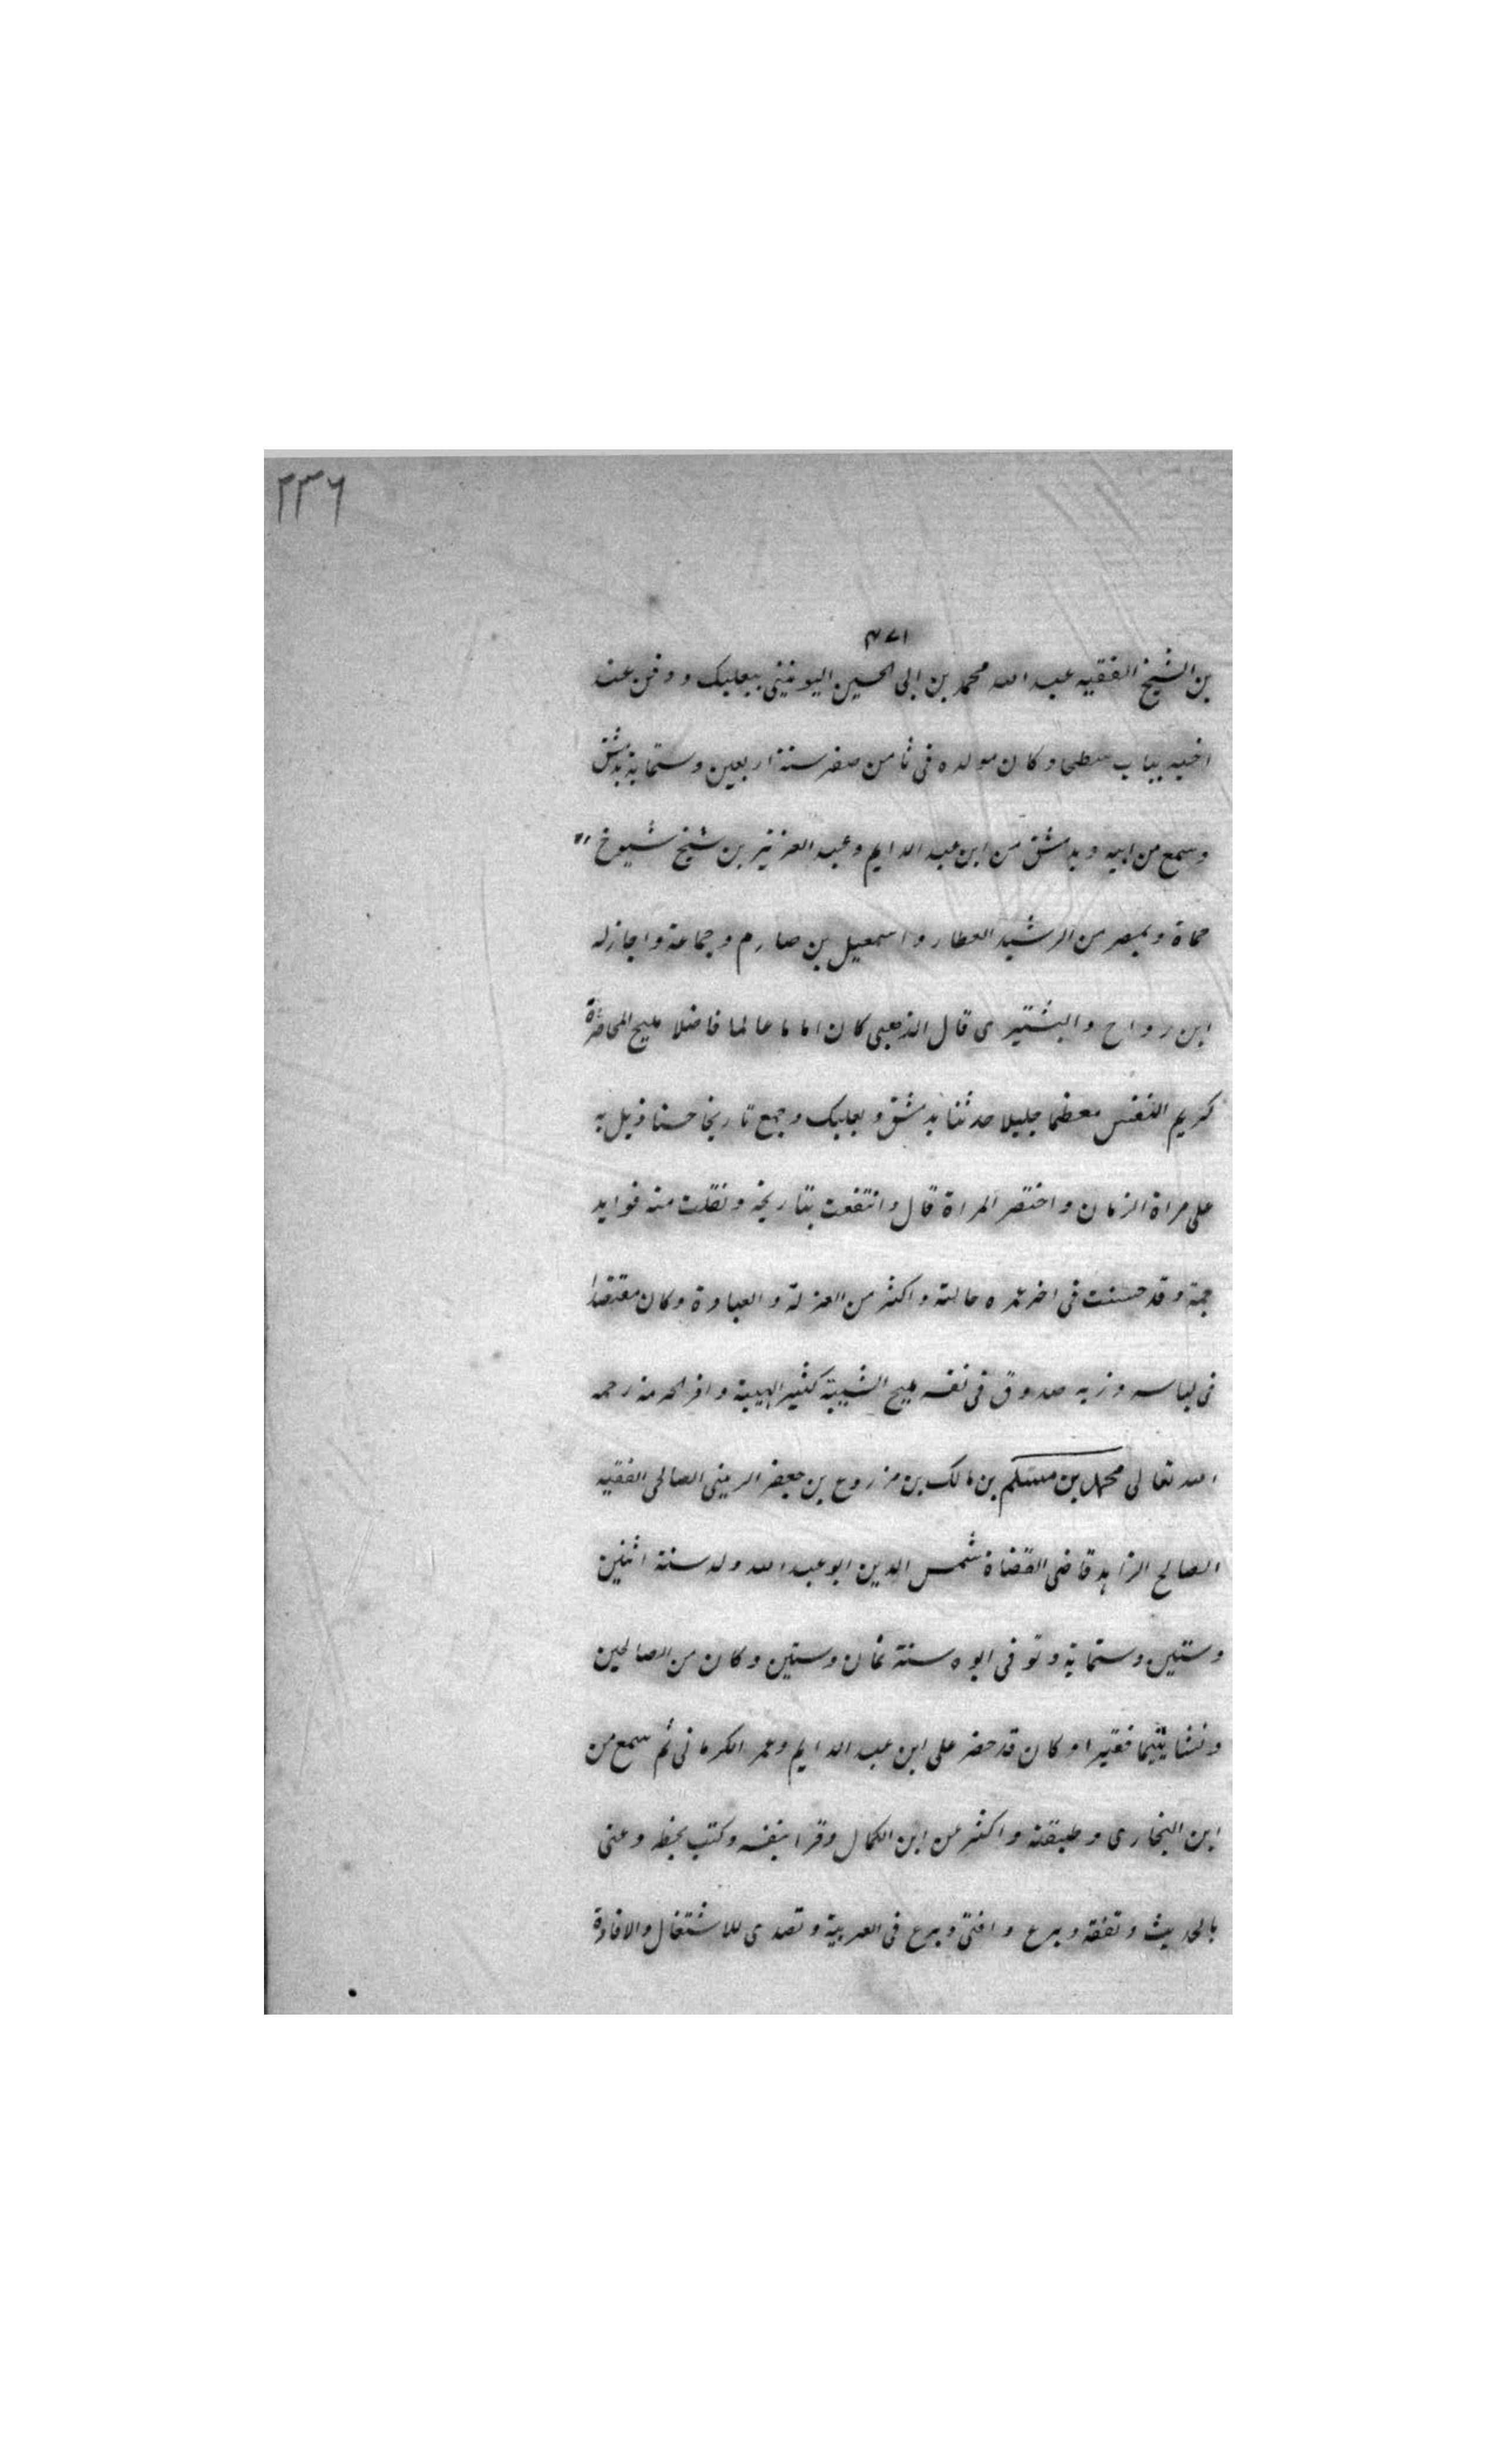 ٢٣٦
٤٧١
بن الشيخ الفقيه عبد الله محمد بن ابى الحسين اليونينى ببعلبك ودفن عند
اخيه بباب سطحا وكان مولده فى ثامن صفر سنة اربعين وستماية بدمشق
وسمع من ابيه وبدمشق من ابن عبد الدايم وعبد العزيز بن شيخ شيوخ
حماة وبمصر من الرشيد العطار واسمعيل بن صارم وجماعة واجاز له
ابن رواح والبشتيرى قال الذهبى كان اماما عالما فاضلا مليح المحاضرة
كريم النفس معظما جليلا حدثنا بدمشق وبعلبك وجمع تاريخا حسنا ذيل به
على مراة الزمان واختصر المراة قال وانتفعت بتاريخه ونقلت منه فوايد
جمة وقد حسنت فى اخر عمره حالته واكثر من العزلة والعبادة وكان مقتصدا
فى لباسه وزيه صدوق فى نفسه مليح الشيبة كثير الهيبة وافر الحرمة رحمه
الله تعالى محمد بن مسلم بن مالك بن مزروع بن جعفر الزينى الصالحى الفقيه
الصالح الزاهد قاضى القضاة شمس الدين ابو عبد الله ولد سنة اثنين
وستين وستماية وتوفى ابوه سنة ثمان وستين وكان من الصالحين
ونشا يتيما فقيرا وكان قد حضر على ابن عبد الدايم وعمر الكرمانى ثم سمع من
ابن البخارى وطبقته واكثر عن ابن الكمال وقرا بنفسه وكتب بخطه وعنى
بالحديث وتفقه وبرع وافتى وبرع فى العربية وتصدى للاشتغال والافادة